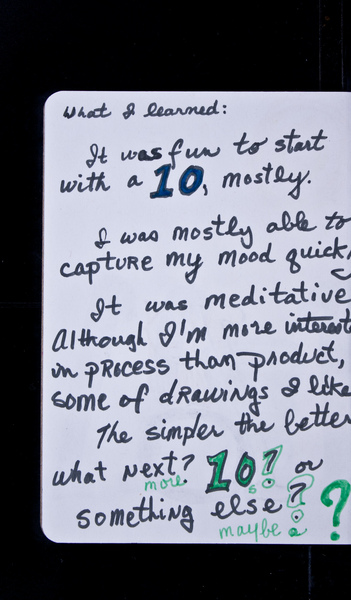 What I learned:
It was fun to start
with a 10, mostly.
I was mostly able to
capture my mood quick
It was meditative
Although I'm more interest
in process than product,
some of drawings I like
The simpler the better
what next? 10? or
more s
something else? ?
maybe a ?